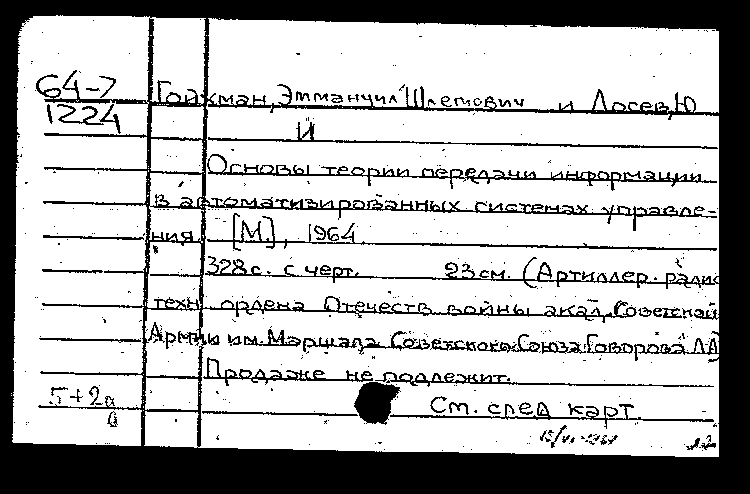 64-7
1224
Гойхман, Эммануил Шлемович и Лосев, Ю
И
Основы теории передачи информации
в автоматизированных системах управле-
ния [М.], 1964.
328 с. с черт. 23 см. (Артиллер. радио
техн ордена Отечеств войны акад. Советской
Армии им. Маршала Советского Союза Говорова Л.А
Продаже не подлежит.
5+2а
См. след карт.